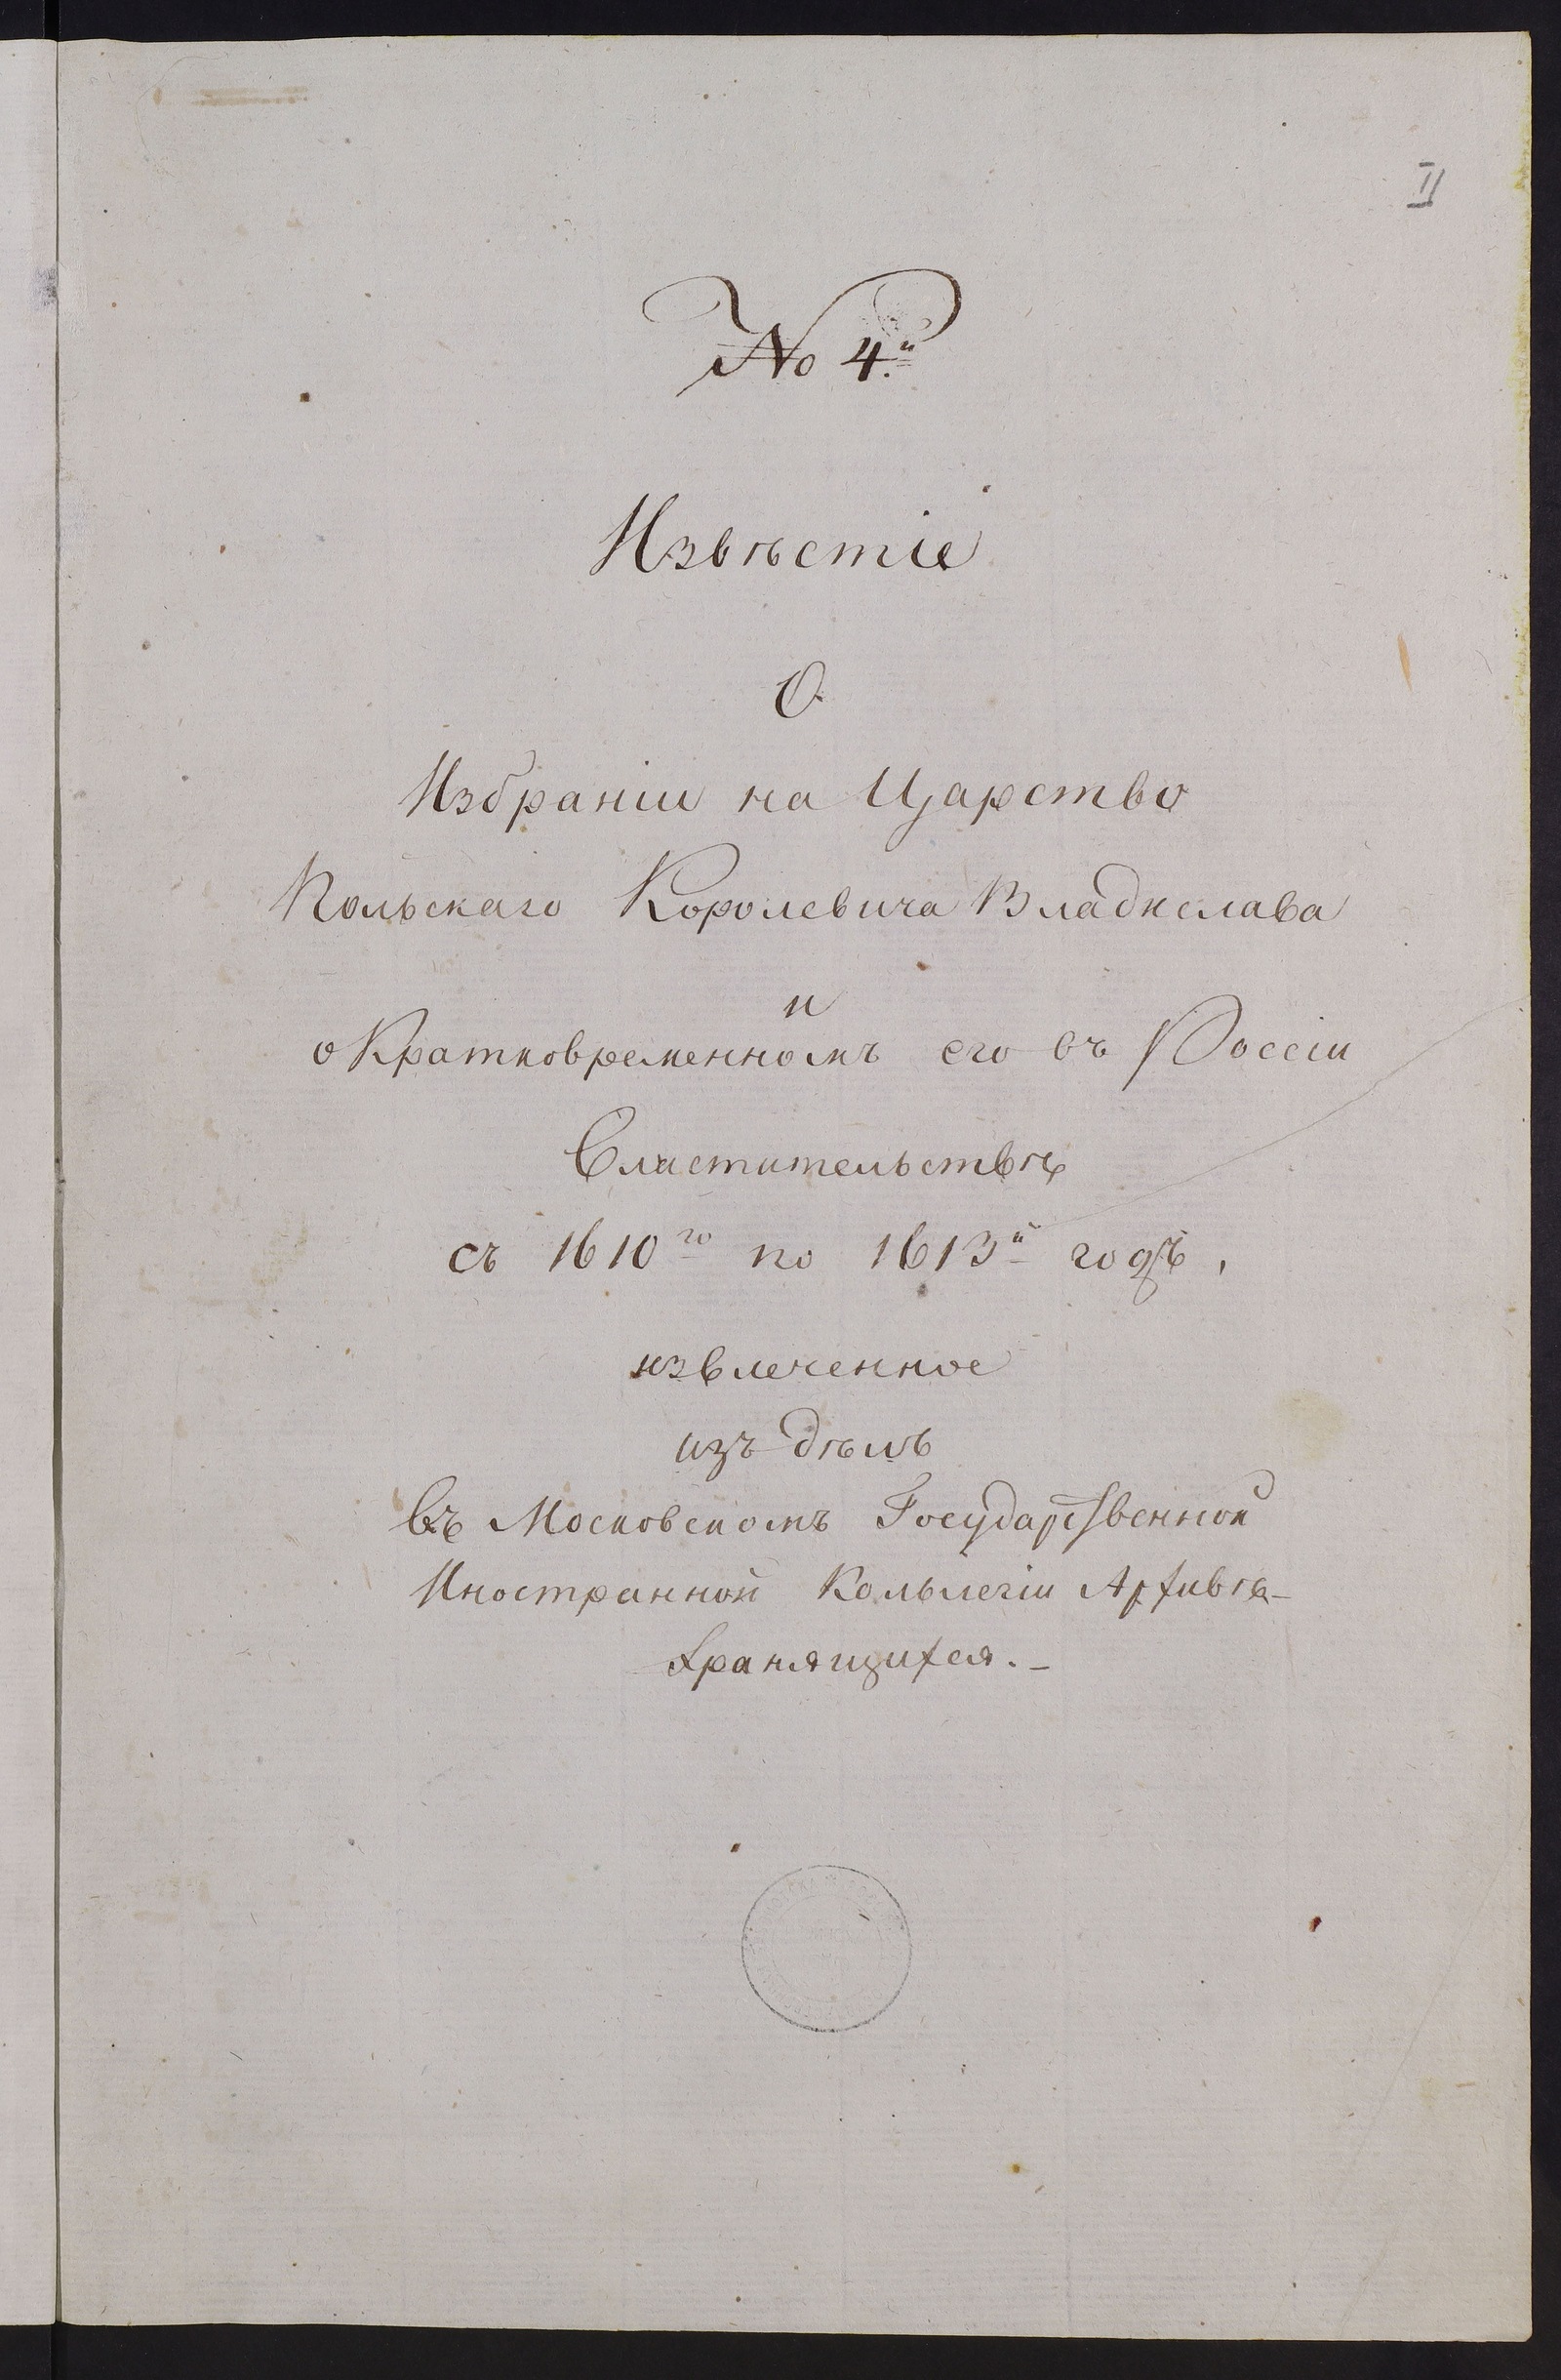 II
No 4.й
Извѣстіе
О
Избраніи на Царство
Польскаго Королевича Владислава
и
о Кратковременномъ его въ Россіи
Властительствѣ
съ 1610го по 1613й годъ,
извлеченное
изъ дѣлъ
въ Московскомъ Государственной
Иностранной Кольлегіи Архивѣ-
хранящихся.-